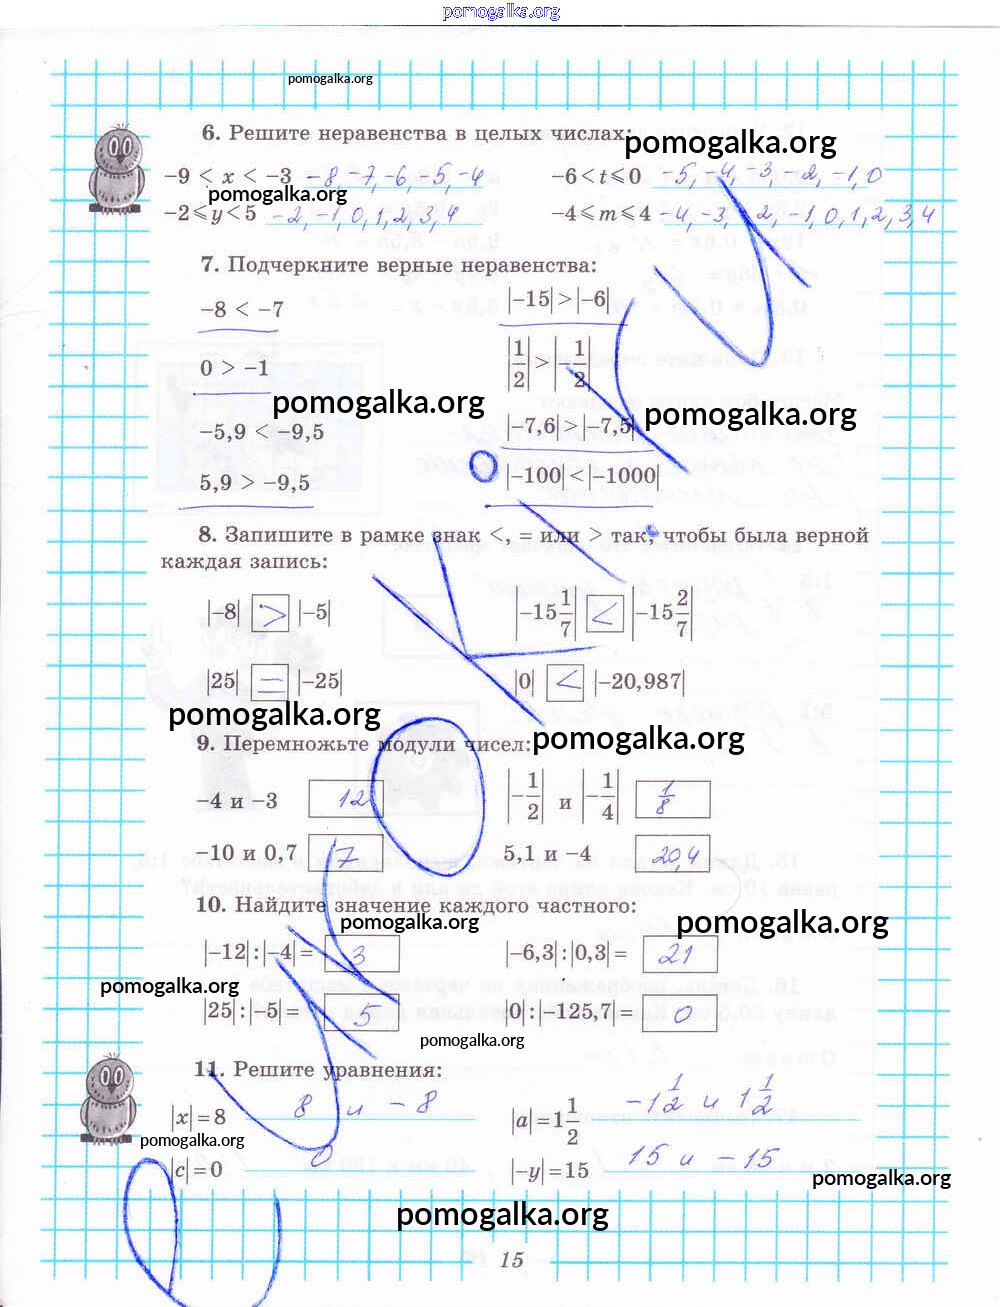 pomogalka.org
pomogalka.org
6. Решите неравенства в целых числах:
pomogalka.org
−9 < x < −3 −8, −7, −6, −5, −4
−6 < t ⩽ 0 −5, −4, −3, −2, −1, 0
pomogalka.org
−2 ⩽ y < 5 −2, −1, 0, 1, 2, 3, 4
−4 ⩽ m ⩽ 4 −4, −3, −2, −1, 0, 1, 2, 3, 4
7. Подчеркните верные неравенства:
−8 < −7
|−15| > |−6|
0 > −1
|1/2| > |−1/2|
pomogalka.org
pomogalka.org
−5,9 < −9,5
|−7,6| > |−7,5|
5,9 > −9,5
|−100| < |−1000|
8. Запишите в рамке знак <, = или > так, чтобы была верной
каждая запись:
|−8| > |−5|
|−15 1/7| < |−15 2/7|
|25| = |−25|
|0| < |−20,987|
pomogalka.org
9. Перемножьте модули чисел:
pomogalka.org
−4 и −3 12
|−1/2| и |−1/4| 1/8
−10 и 0,7 7
5,1 и −4 20,4
10. Найдите значение каждого частного:
pomogalka.org
pomogalka.org
|−12| : |−4| = 3
|−6,3| : |0,3| = 21
pomogalka.org
|25| : |−5| = 5
|0| : |−125,7| = 0
pomogalka.org
11. Решите уравнения:
|x| = 8 8 и −8
|a| = 1 1/2 −1 1/2 и 1 1/2
pomogalka.org
|c| = 0 0
|−y| = 15 15 и −15
pomogalka.org
pomogalka.org
pomogalka.org
15